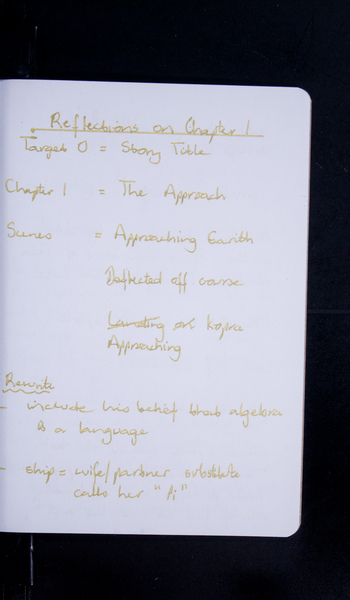 Reflections on Chapter 1
Target 0 = Story Title
Chapter 1 = The Approach
Scenes = Approaching Earith
Deflected off course
Landing on Kopra
Approaching
Rewrite
- include his belief that algebra
is a language
- ship = wife/partner substitute
calls her "Pi"